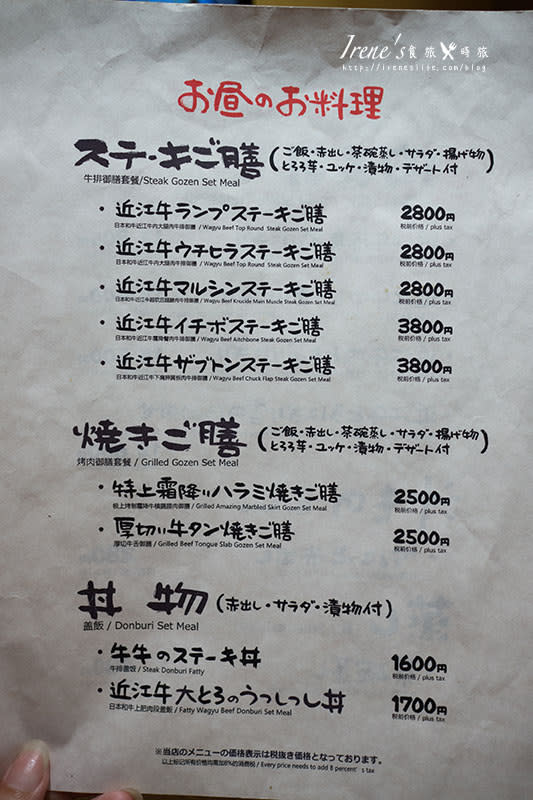 Irene's食旅時旅
http://ireneslife.com/blog
お昼のお料理
ステーキご膳(ご飯・赤出し・茶碗蒸し・サラダ・揚げ物
とろろ芋・ユッケ・漬物・デザート付)
牛排御膳套餐/Steak Gozen Set Meal
・近江牛ランプステーキご膳 2800円
日本和牛近江牛内大腿肉牛排御膳 / Wagyu Beef Top Round Steak Gozen Set Meal 税前价格 / plus tax
・近江牛ウチヒラステーキご膳 2800円
日本和牛近江牛内大腿肉牛排御膳 / Wagyu Beef Top Round Steak Gozen Set Meal 税前价格 / plus tax
・近江牛マルシンステーキご膳 2800円
/ Wagyu Beef Knuckle Main Muscle Steak Gozen Set Meal 税前价格 / plus tax
・近江牛イチボステーキご膳 3800円
/ Wagyu Beef Aitchbone Steak Gozen Set Meal 税前价格 / plus tax
・近江牛ザブトンステーキご膳 3800円
/ Wagyu Beef Chuck Flap Steak Gozen Set Meal 税前价格 / plus tax
焼きご膳(ご飯・赤出し・茶碗蒸し・サラダ・揚げ物
とろろ芋・ユッケ・漬物・デザート付)
烤肉御膳套餐 / Grilled Gozen Set Meal
・特上霜降りハラミ焼きご膳 2500円
/ Grilled Amazing Marbled Skirt Gozen Set Meal 税前价格 / plus tax
・厚切り牛タン焼きご膳 2500円
厚切牛舌御膳 / Grilled Beef Tongue Slab Gozen Set Meal 税前价格 / plus tax
丼物(赤出し・サラダ・漬物付)
盖飯 / Donburi Set Meal
・牛牛のステーキ丼 1600円
牛排盖饭 / Steak Donburi Fatty 税前价格 / plus tax
・近江牛大とろのうっしっし丼 1700円
日本和牛上肥肉段盖飯 / Fatty Wagyu Beef Donburi Set Meal 税前价格 / plus tax
※当店のメニューの価格表示は税抜き価格となっております。
以上标记所有价格均需加8%的消费税 / Every price needs to add 8 percent's tax